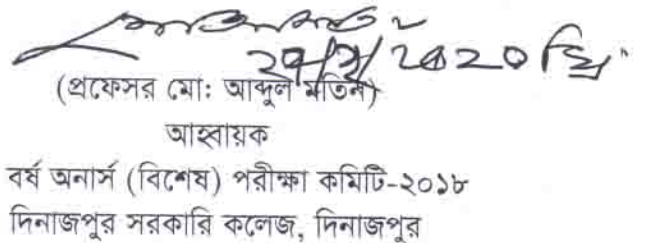 ২০২০ খ্রি
(প্রফেসর মো: আব্দুল মতিন)
আহ্বায়ক
বর্ষ অনার্স (বিশেষ) পরীক্ষা কমিটি-২০১৮
দিনাজপুর সরকারি কলেজ, দিনাজপুর